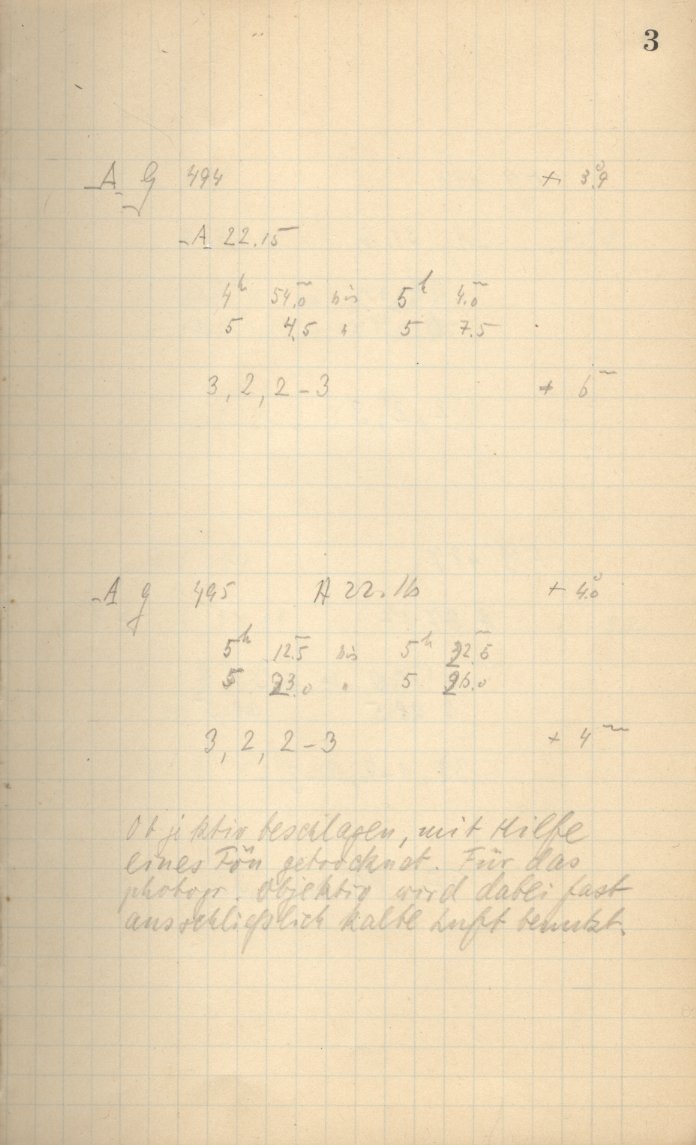 3
A G 494 + 3.°9
A 22.15
4h 54.m0 bis 5h 4.m0
5 4.5 " 5 7.5
3, 2, 2-3 + 6m
A g 495 A 22.16 + 4.°0
5h 12.m5 bis 5h 22.m5
5 23.0 " 5 26.0
3, 2, 2-3 + 4m
Objektiv beschlagen, mit Hilfe
eines Fön getrocknet. Für das
photogr. Objektiv wird dabei fast
ausschließlich kalte Luft benutzt.